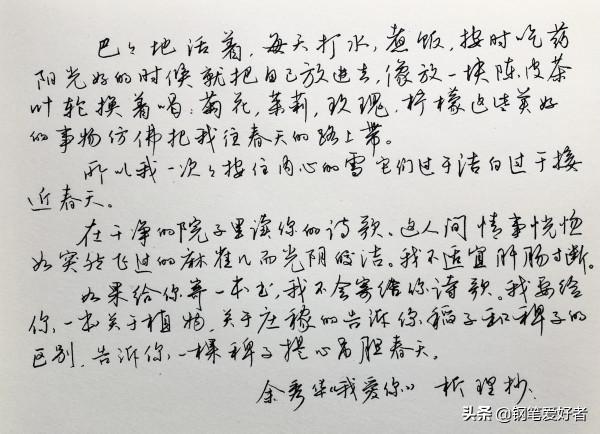 巴巴地活着，每天打水，煮饭，按时吃药
阳光好的时候就把自己放进去，像放一块陈皮茶
叶轮换着喝：菊花，茉莉，玫瑰，柠檬这些美好
的事物仿佛把我往春天的路上带。
所以我一次次按住内心的雪它们过于洁白过于接
近春天。
在干净的院子里读你的诗歌。这人间情事恍惚
如突然飞过的麻雀儿而光阴皎洁。我不适宜肝肠寸断。
如果给你寄一本书，我不会寄给你诗歌。我要给
你，一本关于植物，关于庄稼的告诉你，稻子和稗子的
区别，告诉你，一棵稗子提心吊胆春天。
余秀华《我爱你》 抄
头条 @钢笔爱好者